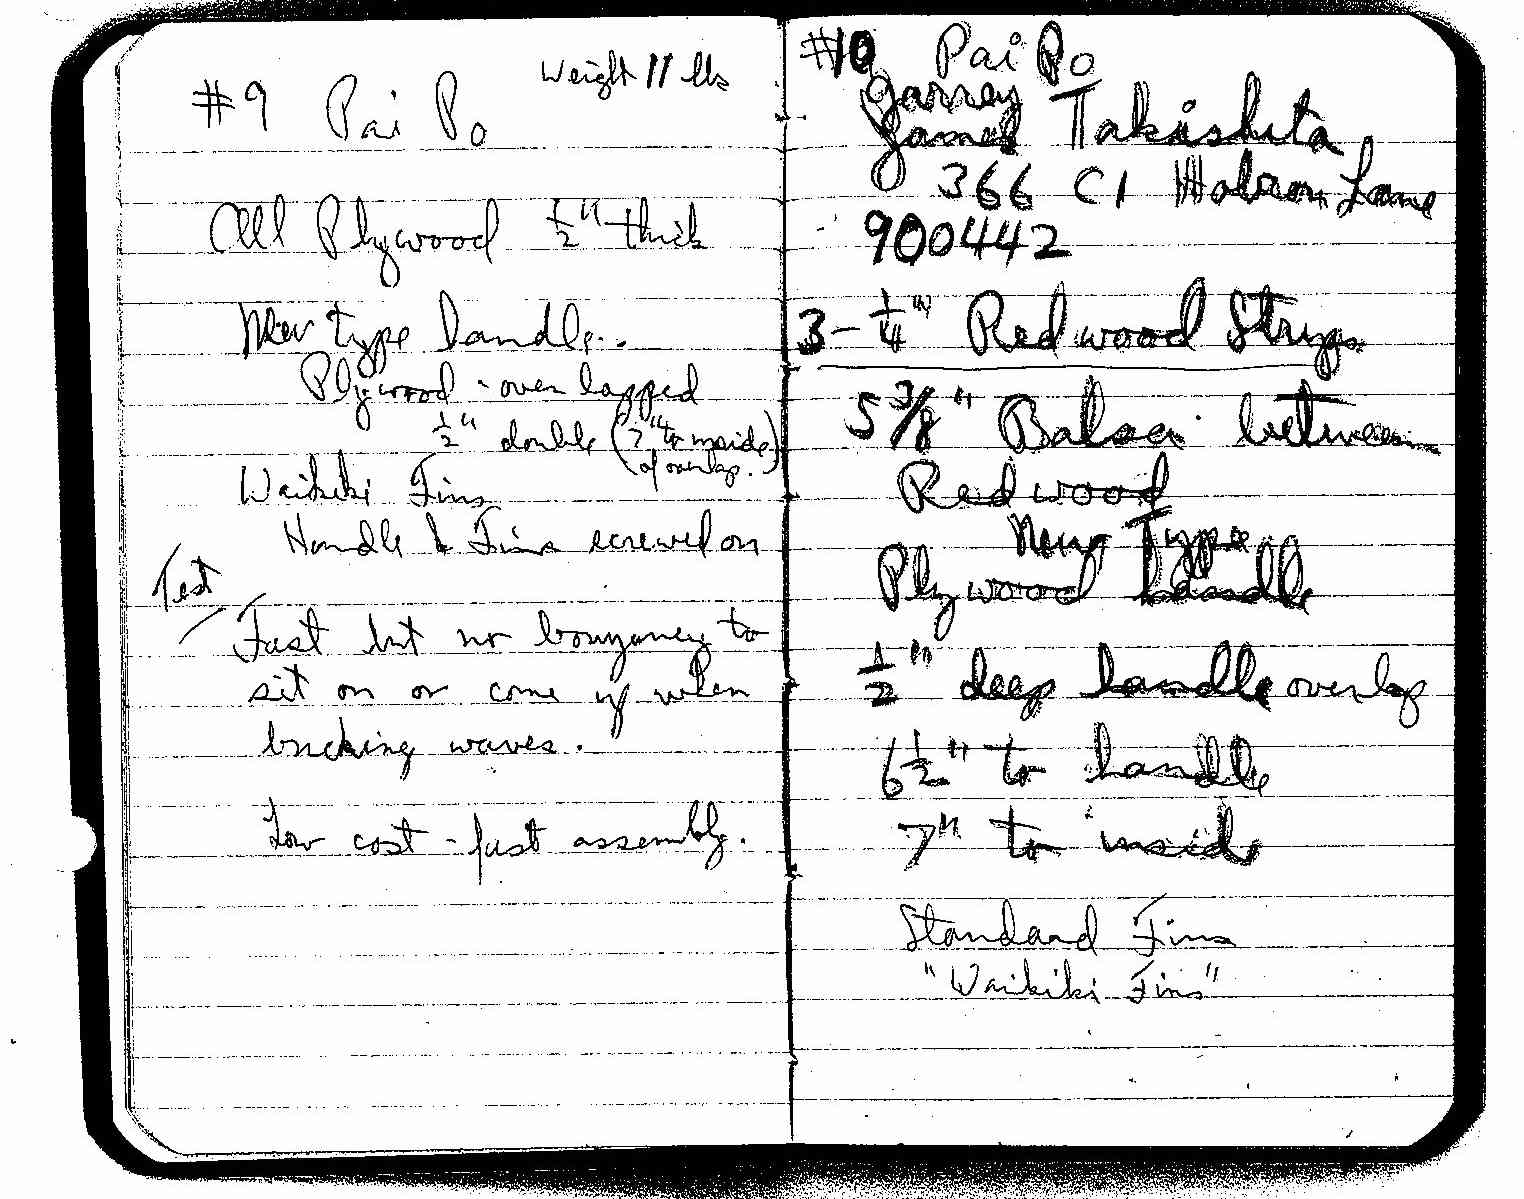 #9 Pai Po Weight 11 lbs
All Plywood 1/2" thick
New type handle..
Plywood - overlapped
1/2" double (7" to inside
of overlap.)
Waikiki Fins
Handle & Fins screwed on
Test
Fast but no bouyancy to
sit on or come up when
bucking waves.
Low cost - fast assembly.
#10 Pai Po
Garrey
James Takishita
366 C1 Hobron Lane
900442
3 - 1/4" Redwood Strips
5 3/8" Balsa between
Redwood
New Type
Plywood handle
1/2" deep handle overlap
6 1/2" to handle
7" to inside
Standard Fins
"Waikiki Fins"